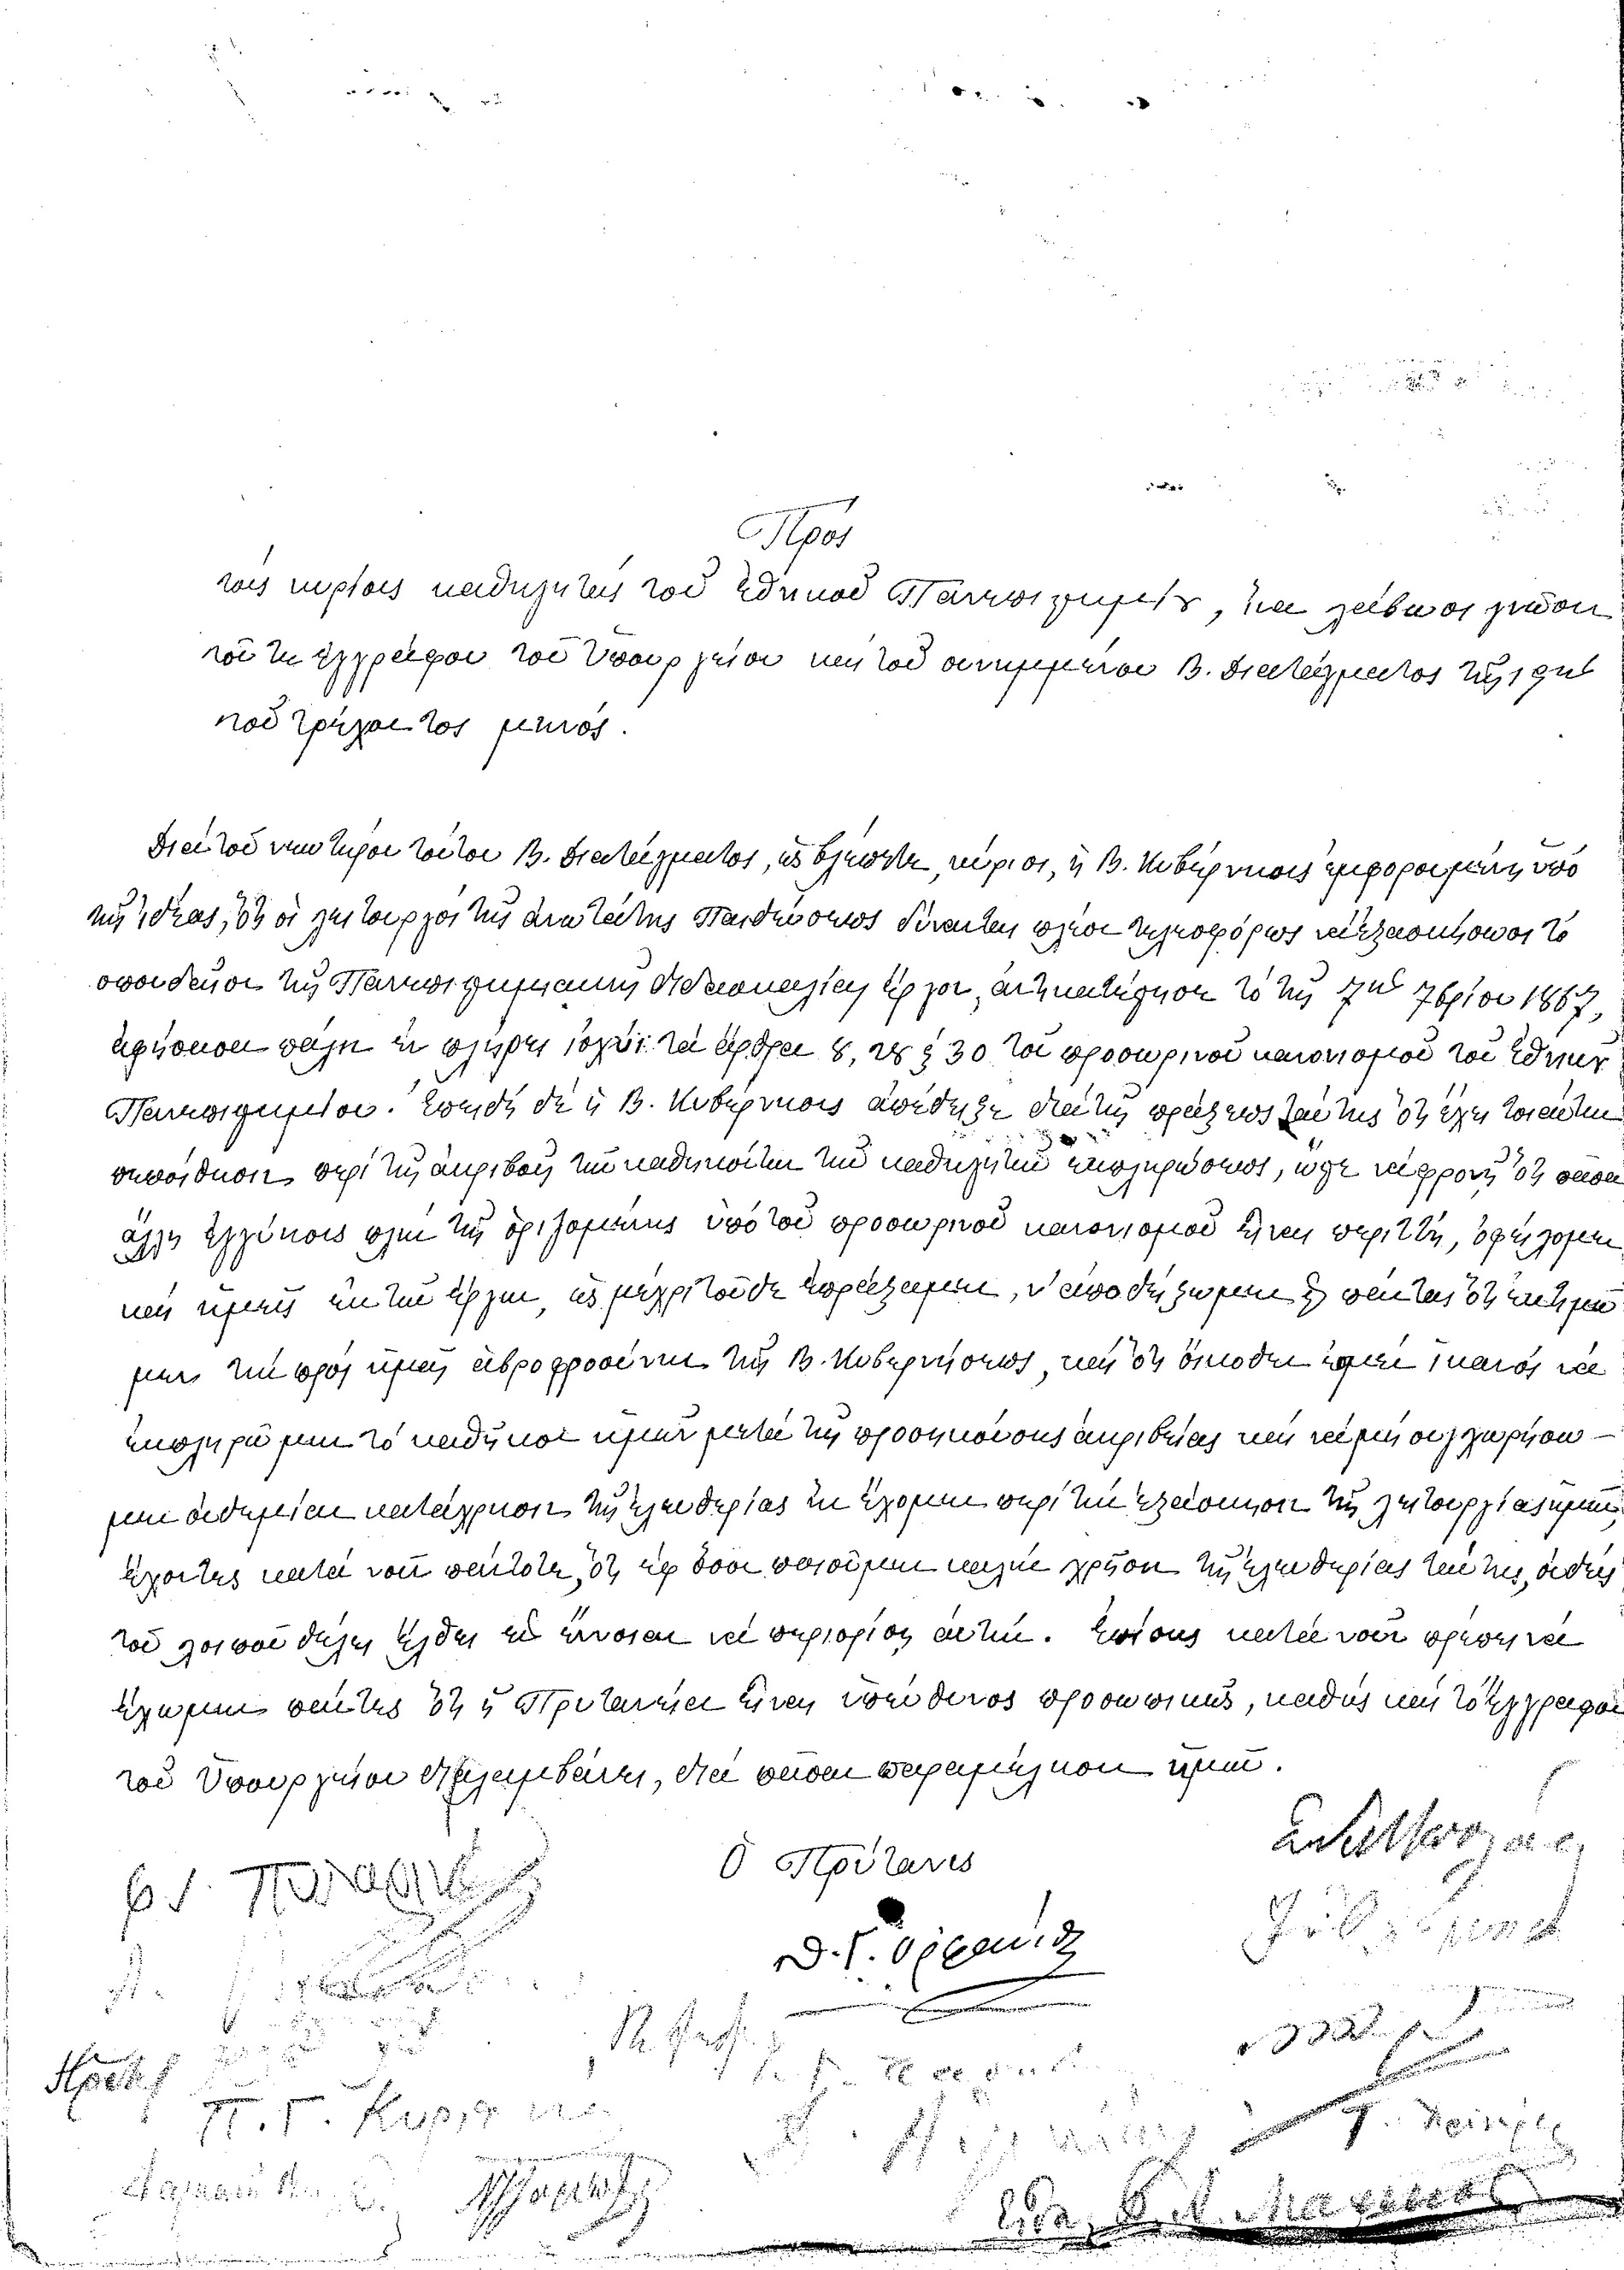 Πρὸς
τοὺς κυρίους καθηγητὰς τοῦ ἐθνικοῦ Πανεπιστημίου, ἵνα λάβωσι γνῶσιν
τοῦ τε ἐγγράφου τοῦ Ὑπουργείου καὶ τοῦ συνημμένου Β. Διατάγματος τῆς
τοῦ τρέχοντος μηνός.
Διὰ τοῦ νεωτέρου τούτου Β. Διατάγματος, ὡς βλέπετε, κύριοι, ἡ Β. Κυβέρνησις ἐμφορουμένη ὑπὸ
τῆς ἰδέας, ὅτι οἱ λειτουργοὶ τῆς ἀνωτάτης Παιδεύσεως δύνανται πλέον τελεσφόρως νὰ ἐξασκήσωσι τὸ
σπουδαῖον τῆς Πανεπιστημιακῆς διδασκαλίας ἔργον, ἀντικατέστησε τὸ τῆς 7ης 7βρίου 1867,
ἀφήσασα πάλιν ἐν πλήρει ἰσχύϊ τὰ ἄρθρα 8, 28 ἢ 30 τοῦ προσωρινοῦ κανονισμοῦ τοῦ ἐθνικοῦ
Πανεπιστημίου. Ἐπειδὴ δὲ ἡ Β. Κυβέρνησις ἀπέδειξε διὰ τῆς πράξεως ταύτης ὅτι ἔχει τοιαύτην
πεποίθησιν περὶ τῆς ἀκριβοῦς τῶν καθηκόντων τῶν καθηγητῶν ἐκπληρώσεως, ὥστε νὰ φρονῇ ὅτι πᾶσα
ἄλλη ἐγγύησις πλὴν τῆς ὁριζομένης ὑπὸ τοῦ προσωρινοῦ κανονισμοῦ εἶναι περιττή, ὀφείλομεν
καὶ ἡμεῖς ἐκ τῶν ἔργων, ὡς μέχρι τοῦδε ἐπράξαμεν, ν' ἀποδείξωμεν εἰς πάντας ὅτι ἐκτιμῶ-
μεν τὴν πρὸς ἡμᾶς ἁβροφροσύνην τῆς Β. Κυβερνήσεως, καὶ ὅτι οἴκοθεν ἐσμὲν ἱκανοὶ νὰ
ἐκπληρῶμεν τὸ καθῆκον ἡμῶν μετὰ τῆς προσηκούσης ἀκριβείας καὶ νὰ μὴ συγχωρήσω-
μεν οὐδεμίαν κατάχρησιν τῆς ἐλευθερίας ἣν ἔχομεν περὶ τὴν ἐξάσκησιν τῆς λειτουργίας ἡμῶν,
ἔχοντες κατὰ νοῦν πάντοτε, ὅτι ἐφ' ὅσον ποιοῦμεν καλὴν χρῆσιν τῆς ἐλευθερίας ταύτης, οὐδεὶς
τοῦ λοιποῦ θέλει ἔλθει εἰς ἔννοιαν νὰ περιορίσῃ αὐτήν. Ἐπίσης κατὰ νοῦν πρέπει νὰ
ἔχωμεν πάντες ὅτι ἡ Πρυτανεία εἶναι ὑπεύθυνος προσωπικῶς, καθὼς καὶ τὸ ἔγγραφον
τοῦ Ὑπουργείου διαλαμβάνει, διὰ πᾶσαν παραμέλησιν ἡμῶν.
Ὁ Πρύτανις